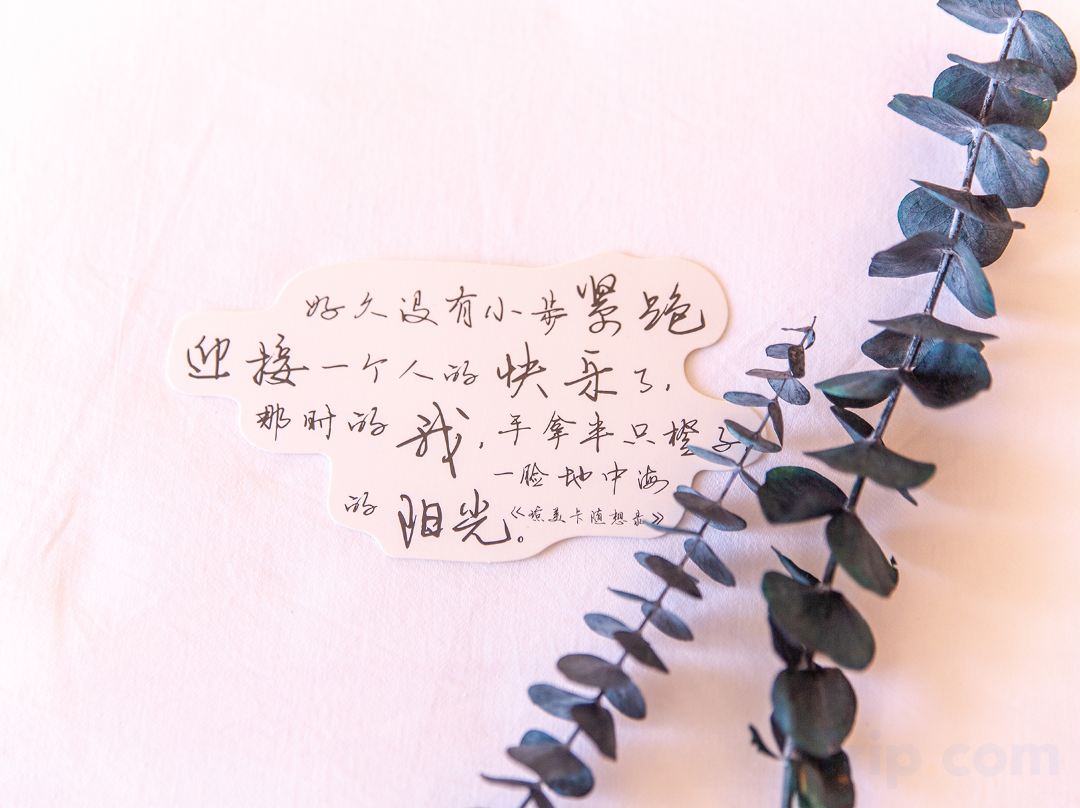 好久没有小步紧跑
迎接一个人的快乐了，
那时的我，手拿半只橙子
一脸地中海
的阳光。《凉美卡随想录》
rip com